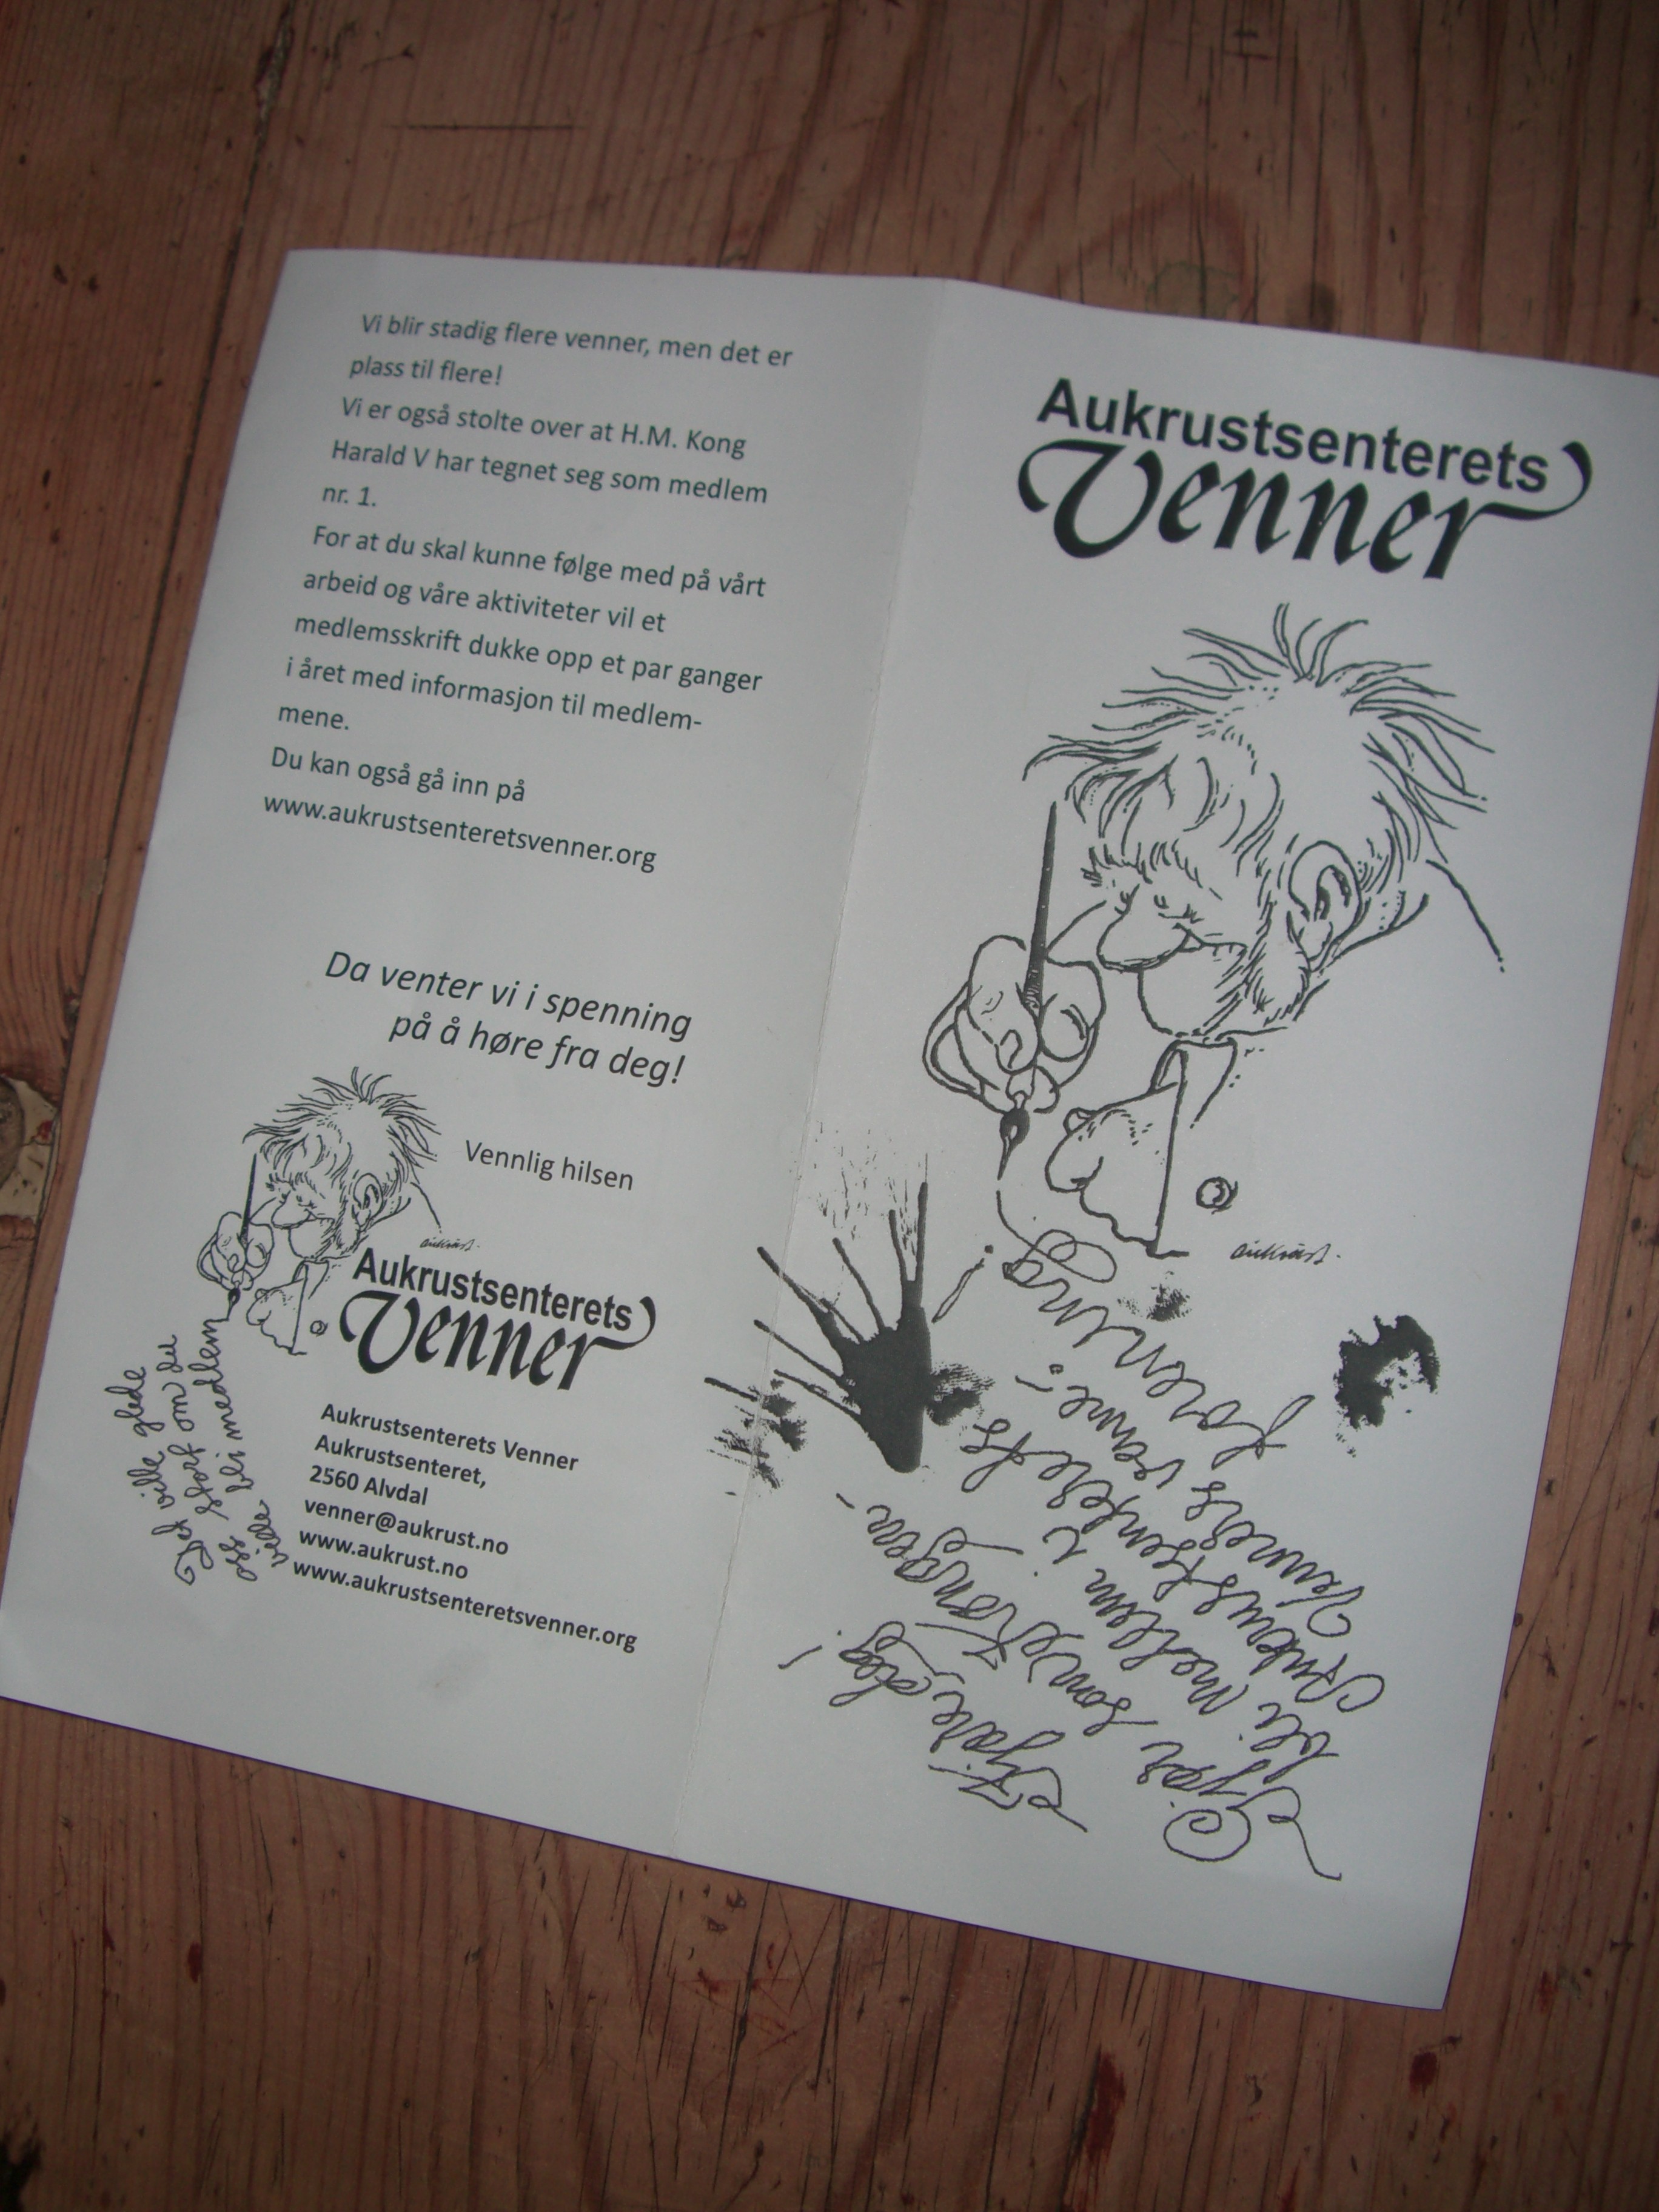 Vi blir stadig flere venner, men det er
plass til flere!
Vi er også stolte over at H.M. Kong
Harald V har tegnet seg som medlem
nr. 1.
For at du skal kunne følge med på vårt
arbeid og våre aktiviteter vil et
medlemsskrift dukke opp et par ganger
i året med informasjon til medlem-
mene.
Du kan også gå inn på
www.aukrustsenteretsvenner.org
Da venter vi i spenning
på å høre fra deg!
Vennlig hilsen
aukrust.
Aukrustsenterets
Venner
Det ville glede
oss stort om du
ville bli medlem
Aukrustsenterets Venner
Aukrustsenteret,
2560 Alvdal
venner@aukrust.no
www.aukrust.no
www.aukrustsenteretsvenner.org
Aukrustsenterets
Venner
aukrust.
Kjære deg!
Gjør som Kongen -
bli medlem i
Aukrustsenterets
Venners venne-
forening!